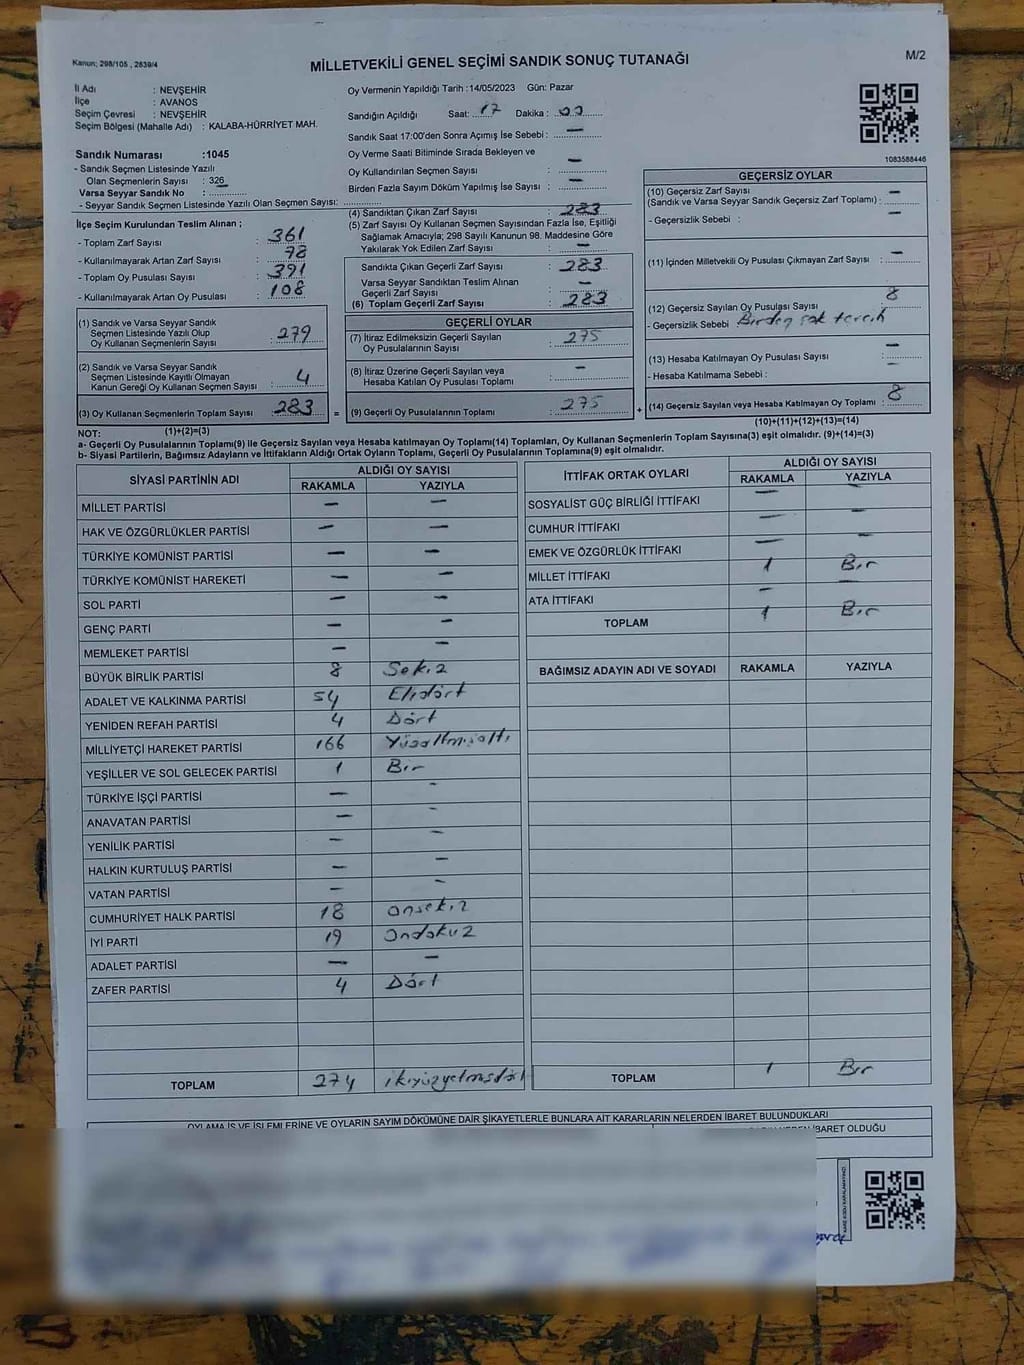 Kanun; 298/105 , 2839/4
MİLLETVEKİLİ GENEL SEÇİMİ SANDIK SONUÇ TUTANAĞI
M/2
İl Adı : NEVŞEHİR
İlçe : AVANOS
Seçim Çevresi : NEVŞEHİR
Seçim Bölgesi (Mahalle Adı) : KALABA-HÜRRİYET MAH.
Sandık Numarası :1045
- Sandık Seçmen Listesinde Yazılı
Olan Seçmenlerin Sayısı : 326
Varsa Seyyar Sandık No :
- Seyyar Sandık Seçmen Listesinde Yazılı Olan Seçmen Sayısı:
Oy Vermenin Yapıldığı Tarih :14/05/2023 Gün: Pazar
Sandığın Açıldığı Saat: 17 Dakika : 00
Sandık Saat 17:00'den Sonra Açımış İse Sebebi : —
Oy Verme Saati Bitiminde Sırada Bekleyen ve
Oy Kullandırılan Seçmen Sayısı : —
Birden Fazla Sayım Döküm Yapılmış İse Sayısı : —
1083588446
İlçe Seçim Kurulundan Teslim Alınan ;
- Toplam Zarf Sayısı : 361
- Kullanılmayarak Artan Zarf Sayısı : 78
- Toplam Oy Pusulası Sayısı : 391
- Kullanılmayarak Artan Oy Pusulası : 108
(1) Sandık ve Varsa Seyyar Sandık
Seçmen Listesinde Yazılı Olup
Oy Kullanan Seçmenlerin Sayısı : 279
(2) Sandık ve Varsa Seyyar Sandık
Seçmen Listesinde Kayıtlı Olmayan
Kanun Gereği Oy Kullanan Seçmen Sayısı : 4
(3) Oy Kullanan Seçmenlerin Toplam Sayısı : 283 =
(1)+(2)=(3)
(4) Sandıktan Çıkan Zarf Sayısı : 283
(5) Zarf Sayısı Oy Kullanan Seçmen Sayısından Fazla İse, Eşitliği
Sağlamak Amacıyla; 298 Sayılı Kanunun 98. Maddesine Göre
Yakılarak Yok Edilen Zarf Sayısı : —
Sandıkta Çıkan Geçerli Zarf Sayısı : 283
Varsa Seyyar Sandıktan Teslim Alınan
Geçerli Zarf Sayısı : —
(6) Toplam Geçerli Zarf Sayısı : 283
GEÇERLİ OYLAR
(7) İtiraz Edilmeksizin Geçerli Sayılan
Oy Pusulalarının Sayısı : 275
(8) İtiraz Üzerine Geçerli Sayılan veya
Hesaba Katılan Oy Pusulası Toplamı : —
(9) Geçerli Oy Pusulalarının Toplamı : 275 +
GEÇERSİZ OYLAR
(10) Geçersiz Zarf Sayısı
(Sandık ve Varsa Sandık Geçersiz Zarf Toplamı) : —
- Geçersizlik Sebebi : —
(11) İçinden Milletvekili Oy Pusulası Çıkmayan Zarf Sayısı : —
(12) Geçersiz Sayılan Oy Pusulası Sayısı : 8
- Geçersizlik Sebebi : Birden çok tercih
(13) Hesaba Katılmayan Oy Pusulası Sayısı : —
- Hesaba Katılmama Sebebi : —
(14) Geçersiz Sayılan veya Hesaba Katılmayan Oy Toplamı : 8
(10)+(11)+(12)+(13)=(14)
NOT:
a- Geçerli Oy Pusulalarının Toplamı(9) ile Geçersiz Sayılan veya Hesaba katılmayan Oy Toplamı(14) Toplamları, Oy Kullanan Seçmenlerin Toplam Sayısına(3) eşit olmalıdır. (9)+(14)=(3)
b- Siyasi Partilerin, Bağımsız Adayların ve İttifakların Aldığı Ortak Oyların Toplamı, Geçerli Oy Pusulalarının Toplamına(9) eşit olmalıdır.
SİYASİ PARTİNİN ADI ALDIĞI OY SAYISI
RAKAMLA YAZIYLA
MİLLET PARTİSİ — —
HAK VE ÖZGÜRLÜKLER PARTİSİ — —
TÜRKİYE KOMÜNİST PARTİSİ — —
TÜRKİYE KOMÜNİST HAREKETİ — —
SOL PARTİ — —
GENÇ PARTİ — —
MEMLEKET PARTİSİ — —
BÜYÜK BİRLİK PARTİSİ 8 Sekiz
ADALET VE KALKINMA PARTİSİ 54 Ellidört
YENİDEN REFAH PARTİSİ 4 Dört
MİLLİYETÇİ HAREKET PARTİSİ 166 Yüzaltmışaltı
YEŞİLLER VE SOL GELECEK PARTİSİ 1 Bir
TÜRKİYE İŞÇİ PARTİSİ — —
ANAVATAN PARTİSİ — —
YENİLİK PARTİSİ — —
HALKIN KURTULUŞ PARTİSİ — —
VATAN PARTİSİ — —
CUMHURİYET HALK PARTİSİ 18 Onsekiz
İYİ PARTİ 19 Ondokuz
ADALET PARTİSİ — —
ZAFER PARTİSİ 4 Dört
TOPLAM 274 ikiyüzyetmişdört
İTTİFAK ORTAK OYLARI ALDIĞI OY SAYISI
RAKAMLA YAZIYLA
SOSYALİST GÜÇ BİRLİĞİ İTTİFAKI — —
CUMHUR İTTİFAKI — —
EMEK VE ÖZGÜRLÜK İTTİFAKI — —
MİLLET İTTİFAKI 1 Bir
ATA İTTİFAKI — —
TOPLAM 1 Bir
BAĞIMSIZ ADAYIN ADI VE SOYADI RAKAMLA YAZIYLA
TOPLAM 1 Bir
OYLAMA İŞ VE İŞLEMLERİNE VE OYLARIN SAYIM DÖKÜMÜNE DAİR ŞİKAYETLERLE BUNLARA AİT KARARLARIN NELERDEN İBARET BULUNDUKLARI
İBARET OLDUĞU